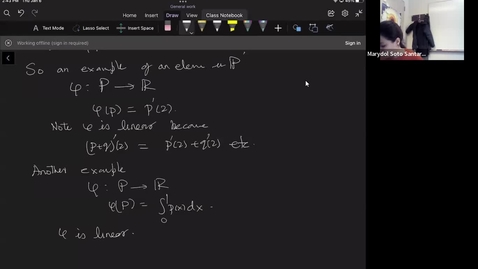 2:43 PM Thu Jan 6
General work
AI Assistant
Draw
Class Notebook
Text Mode
Lasso Select
Insert Space
Working offline (sign in required)
Sign in
Marydol Soto Santar...
So an example of an elem in P'
φ : P → R
φ(p) = p'(2).
Note φ is linear because
(p+q)'(2) = p'(2) + q'(2) etc
Another example
φ : P → R
φ(P) = ∫₀¹ p(x) dx .
φ is linear.